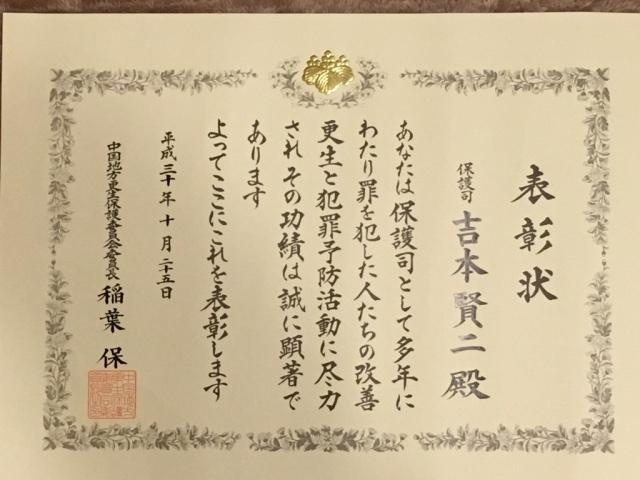 表彰状
保護司 吉本賢二殿
あなたは保護司として多年に
わたり罪を犯した人たちの改善
更生と犯罪予防活動に尽力
され その功績は誠に顕著で
あります
よってここにこれを表彰します
平成三十年十月二十五日
中国地方更生保護委員会委員長 稲葉 保